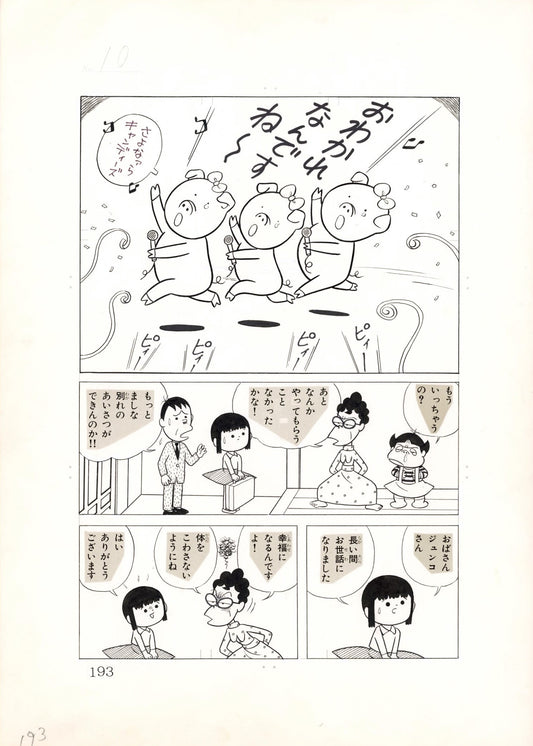 10
おわかれ
なんです
ね〜
さよなら
キャンディーズ
ピィー
ピィー
ピィー
ピィー
もう
いっちゃう
の？
あと
なんか
やってもらう
こと
なかった
かな！
もっと
ましな
別れの
あいさつが
できんのか!!
おばさん
ジュンコ
さん
長い間
お世話に
なりました
幸福に
なるんです
よ！
体を
こわさない
ようにね
はい
ありがとう
ございます
193
193